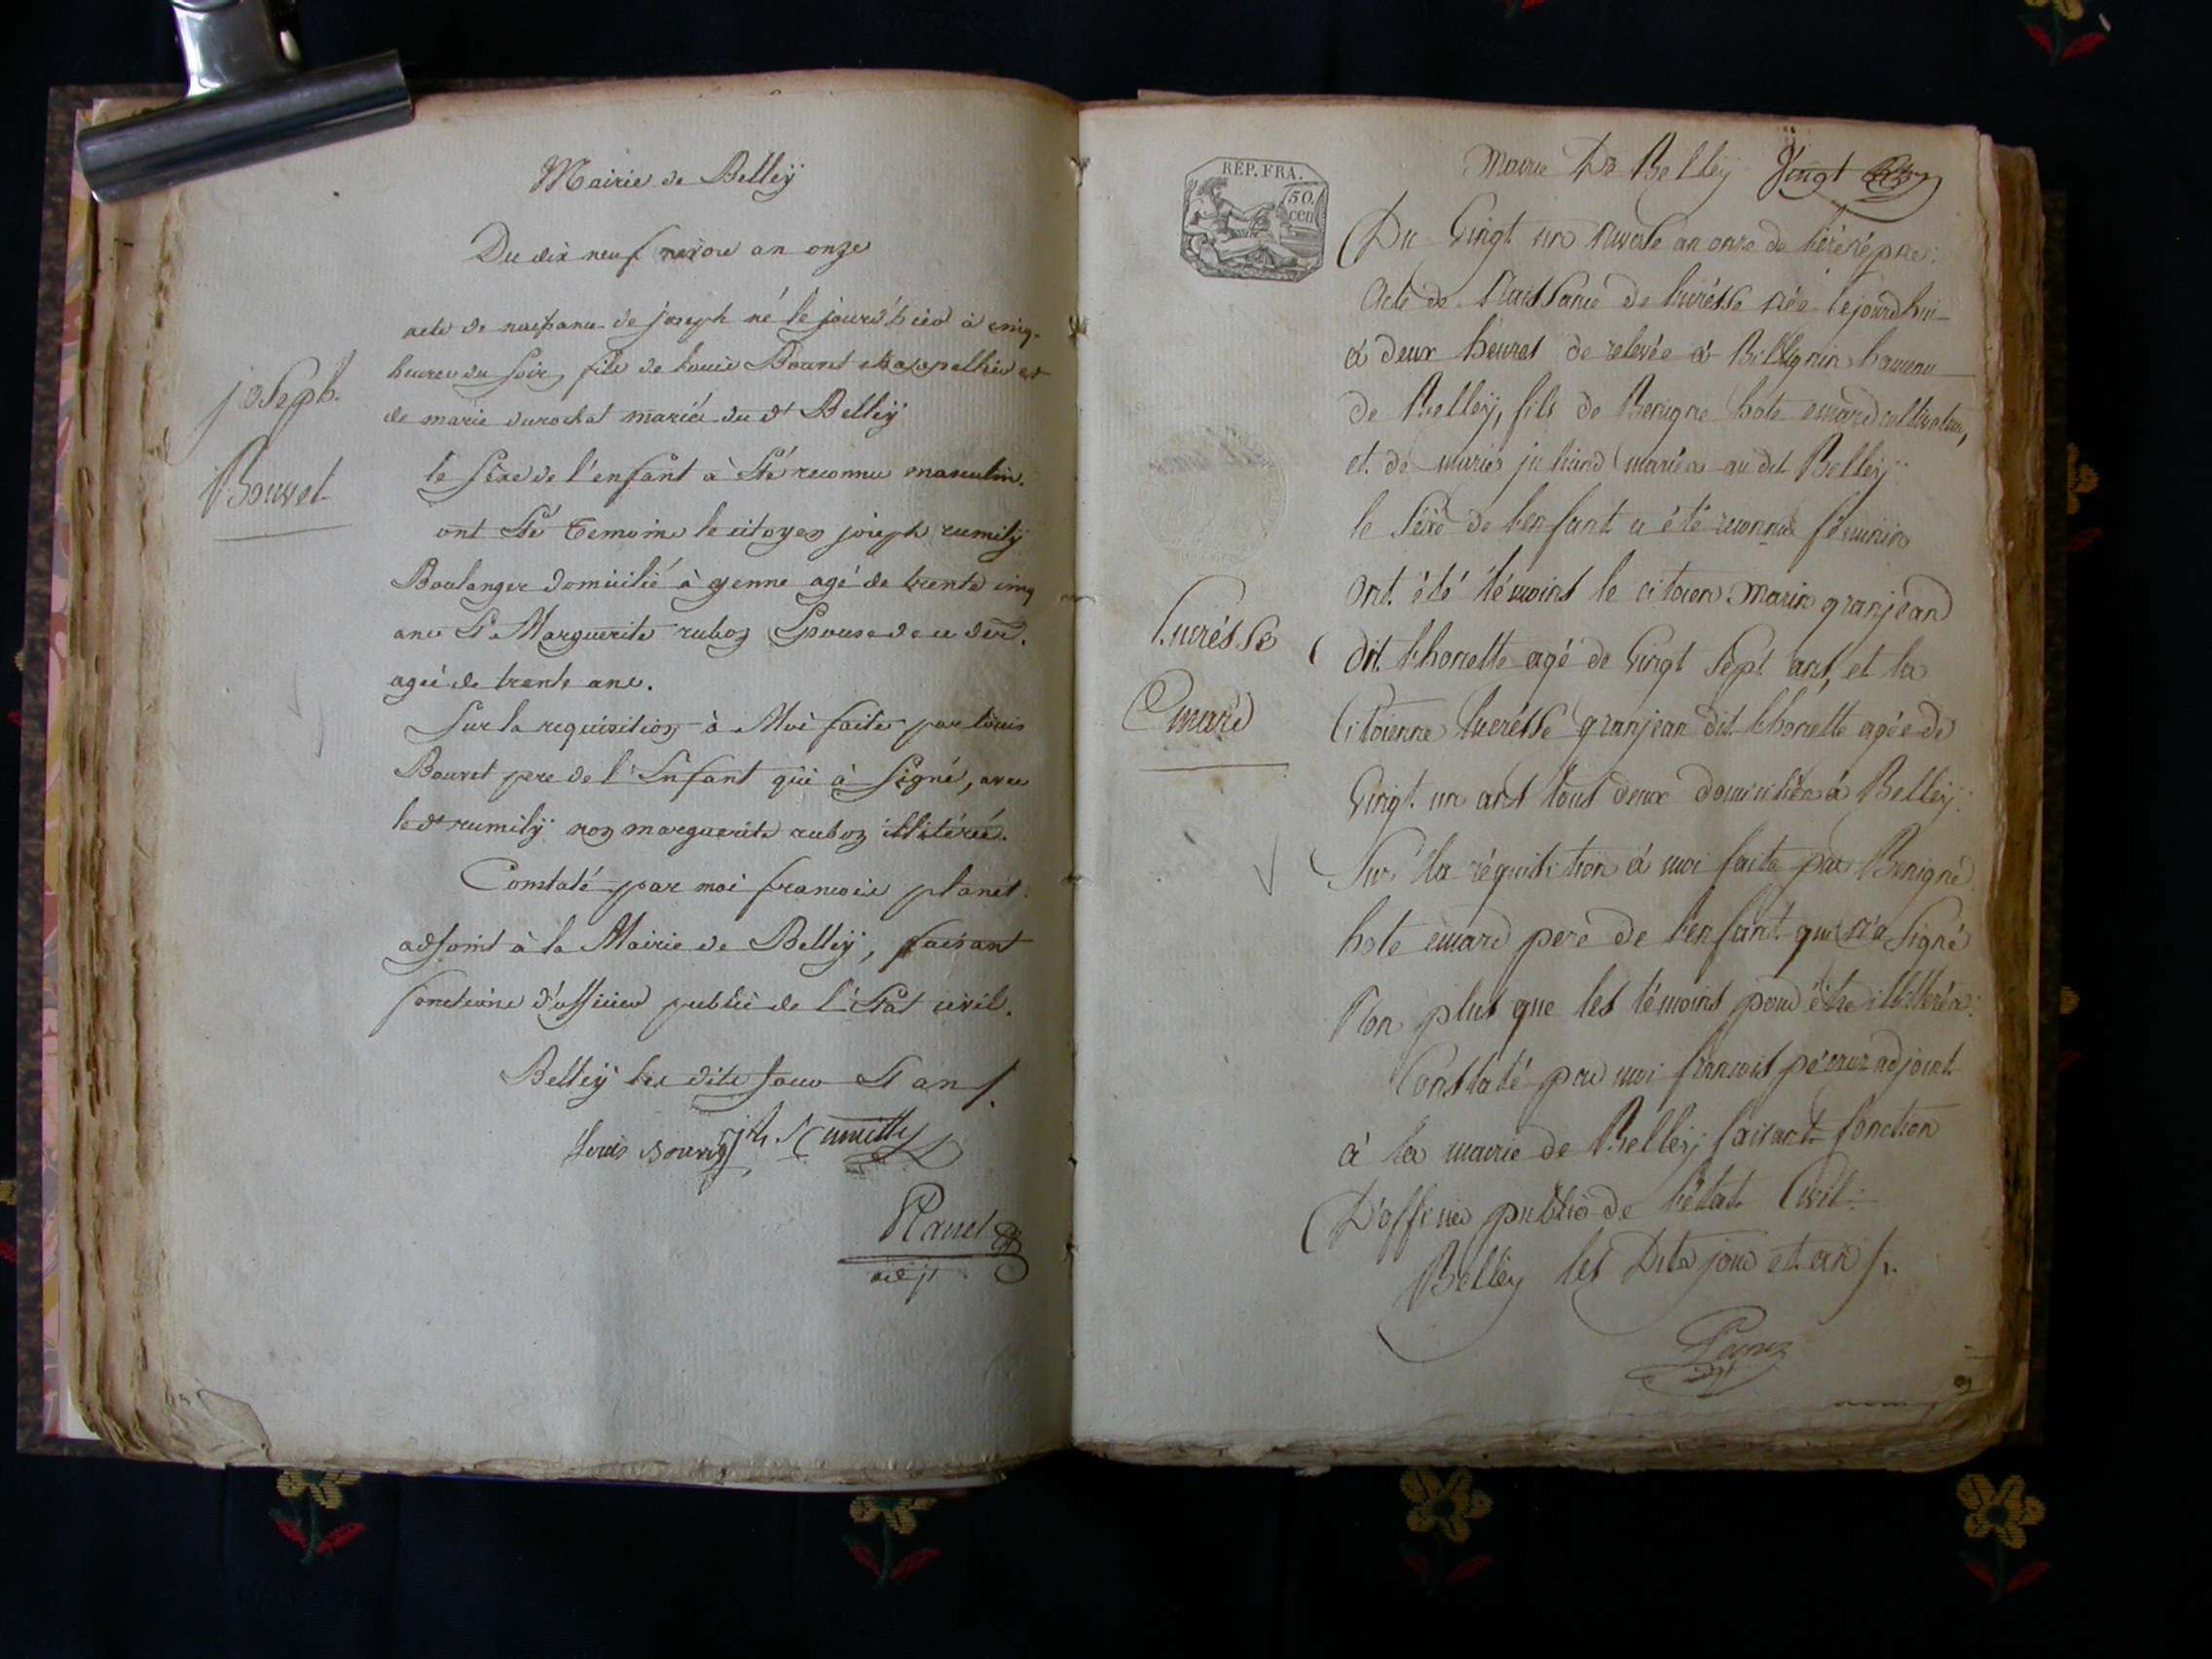 Mairie de Belleÿ
Du dix neuf nivose an onze
acte de naissance de joseph né le jourd'hier à cinq
heures du soir, fils de Louis Bouvet et
de marie durochat mariés du dt Belleÿ
joseph
Bouvet
le sexe de l'enfant à été reconnu masculin.
ont été temoins le citoyen joseph rumilÿ
Boulanger domicilié à yenne agé de trente cinq
ans Et Marguerite ruboz Epouse de ce der.
agée de trente ans.
Sur la requisition à Moi faite par louis
Bouvet pere de l'Enfant qui à signé, avec
le dt rumilÿ non marguerite ruboz illitérée.
Constaté par moi francois planet
adjoint à la Mairie de Belleÿ, faisant
fonctions d'officier public de l'Etat civil.
Belleÿ les dits jour Et an
Louis Bouvet jh Rumilly
Planet
adjt
REP. FRA.
50.
cen
Mairie De Belleÿ Vingt
Du Vingt un Nivose an onze de l'ère rép.ne
Acte de Naissance de lucrésse née cejourdhui
à deux heures de relevée à Billignin hameau
de Belleÿ, fils de Benigne hote emard cultivateur,
et de marie juliand mariés au dit Belleÿ
le séxe de l'enfant a été reconnue féminin
ont été témoins le citoien Marin granjean
dit thonette agé de Vingt Sept ans, et la
Lucrésse
Emard
Citoienne lucrésse granjean dit thonette agée de
Vingt un ans tous deux domiciliés à Belleÿ
Sur la réquisition à moi faite par Benigne
hote emard pere de l'enfant qui n'a signé
Non plus que les témoins pour être illitterés
Constaté par moi francois pérouz adjoint
à la mairie de Belleÿ faisant fonction
D'officier public de l'état Civil
Belley les Dits jour et an